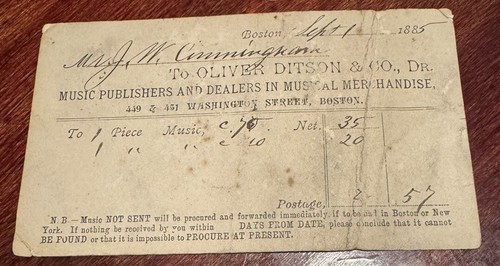 Boston, Sept 1 1885
Mr J. W. Cunningham
To OLIVER DITSON & CO., DR.
MUSIC PUBLISHERS AND DEALERS IN MUSICAL MERCHANDISE,
449 & 451 WASHINGTON STREET, BOSTON.
To 1 Piece Music, c 70 Net. 35
1 " " c 10 20
Postage, 2 57
N.B — Music NOT SENT will be procured and forwarded immediately, if to be had in Boston or New
York. If nothing be received by you within DAYS FROM DATE, please conclude that it cannot
BE FOUND or that it is impossible to PROCURE AT PRESENT.